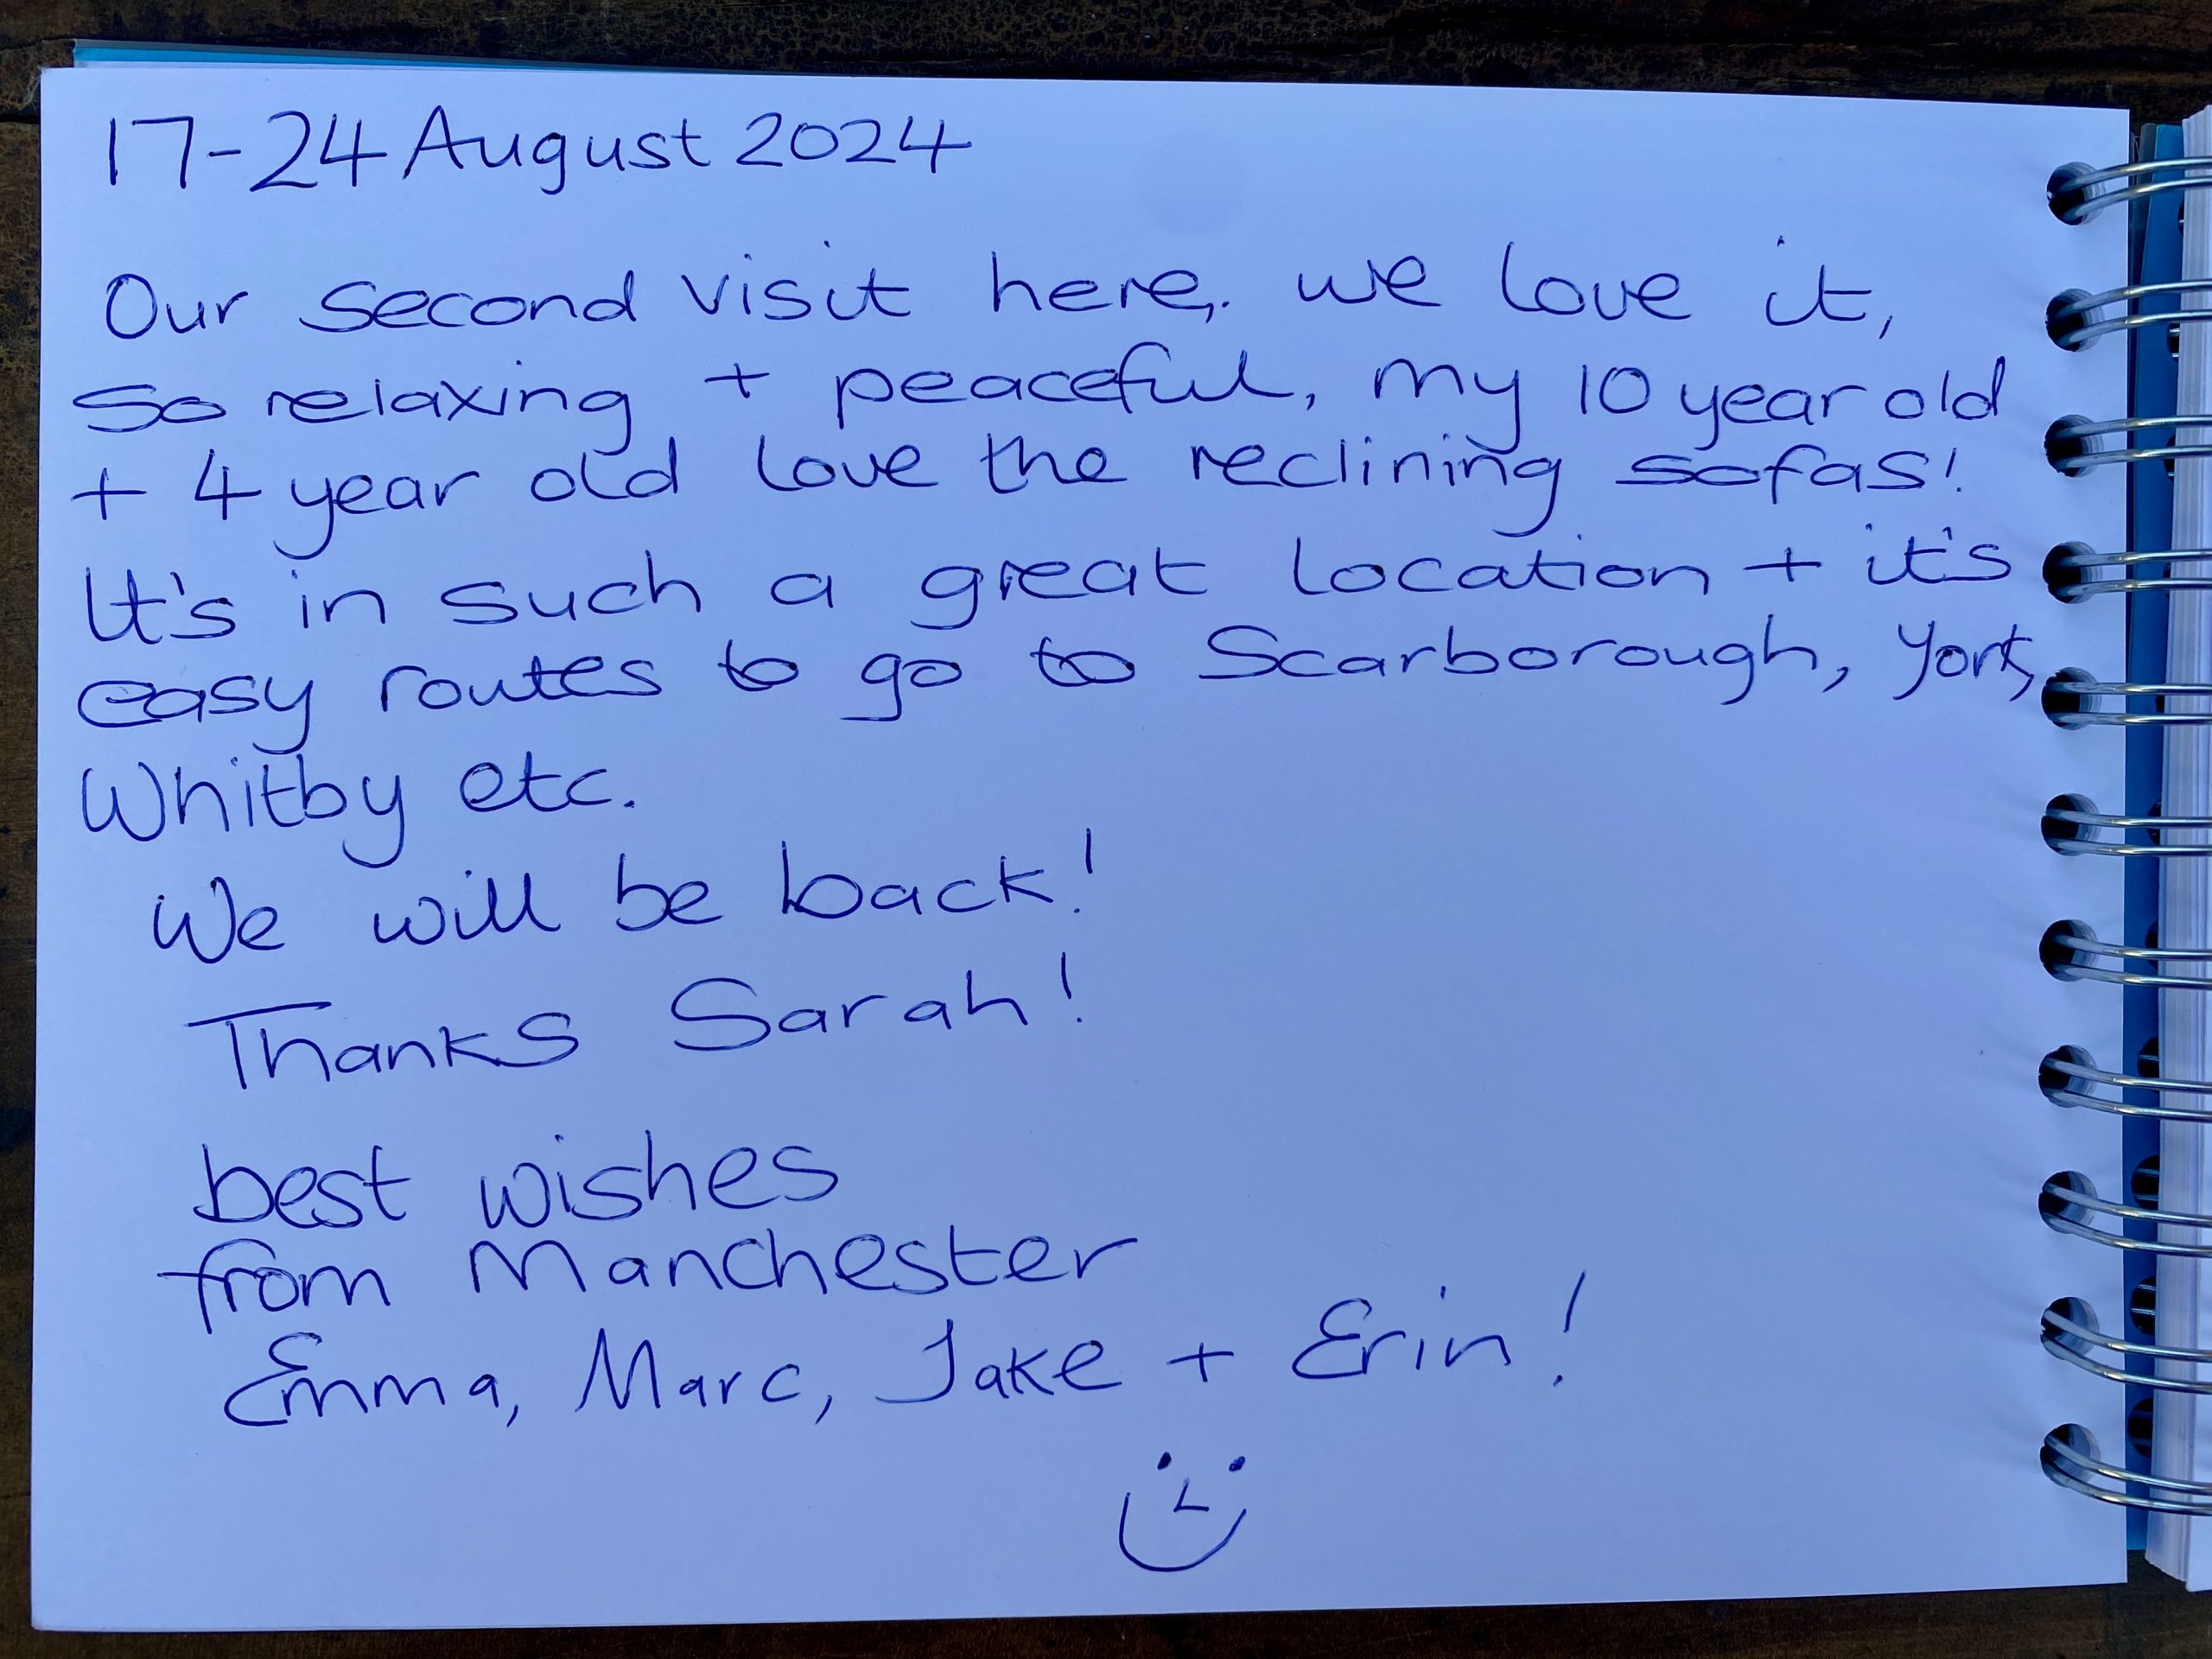 17-24 August 2024
Our second visit here,. we love it,
so relaxing + peaceful, my 10 year old
+ 4 year old love the reclining sofas!
It's in such a great location + it's
easy routes to go to Scarborough, York,
Whitby etc.
We will be back!
Thanks Sarah!
best wishes
from Manchester
Emma, Marc, Jake + Erin!